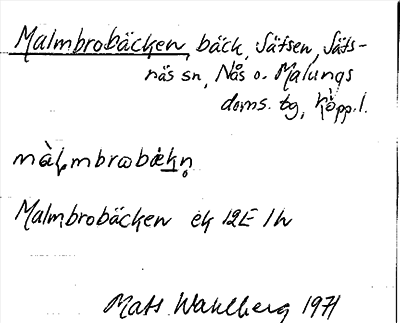 Malmbrobäcken, bäck, Säfsen, Säfs-
näs sn, Nås o. Malungs
doms. tg, Kopp. l.
màl̥mbrωbèkn̥
Malmbrobäcken ek 12E 1h
Mats Wahlberg 1971